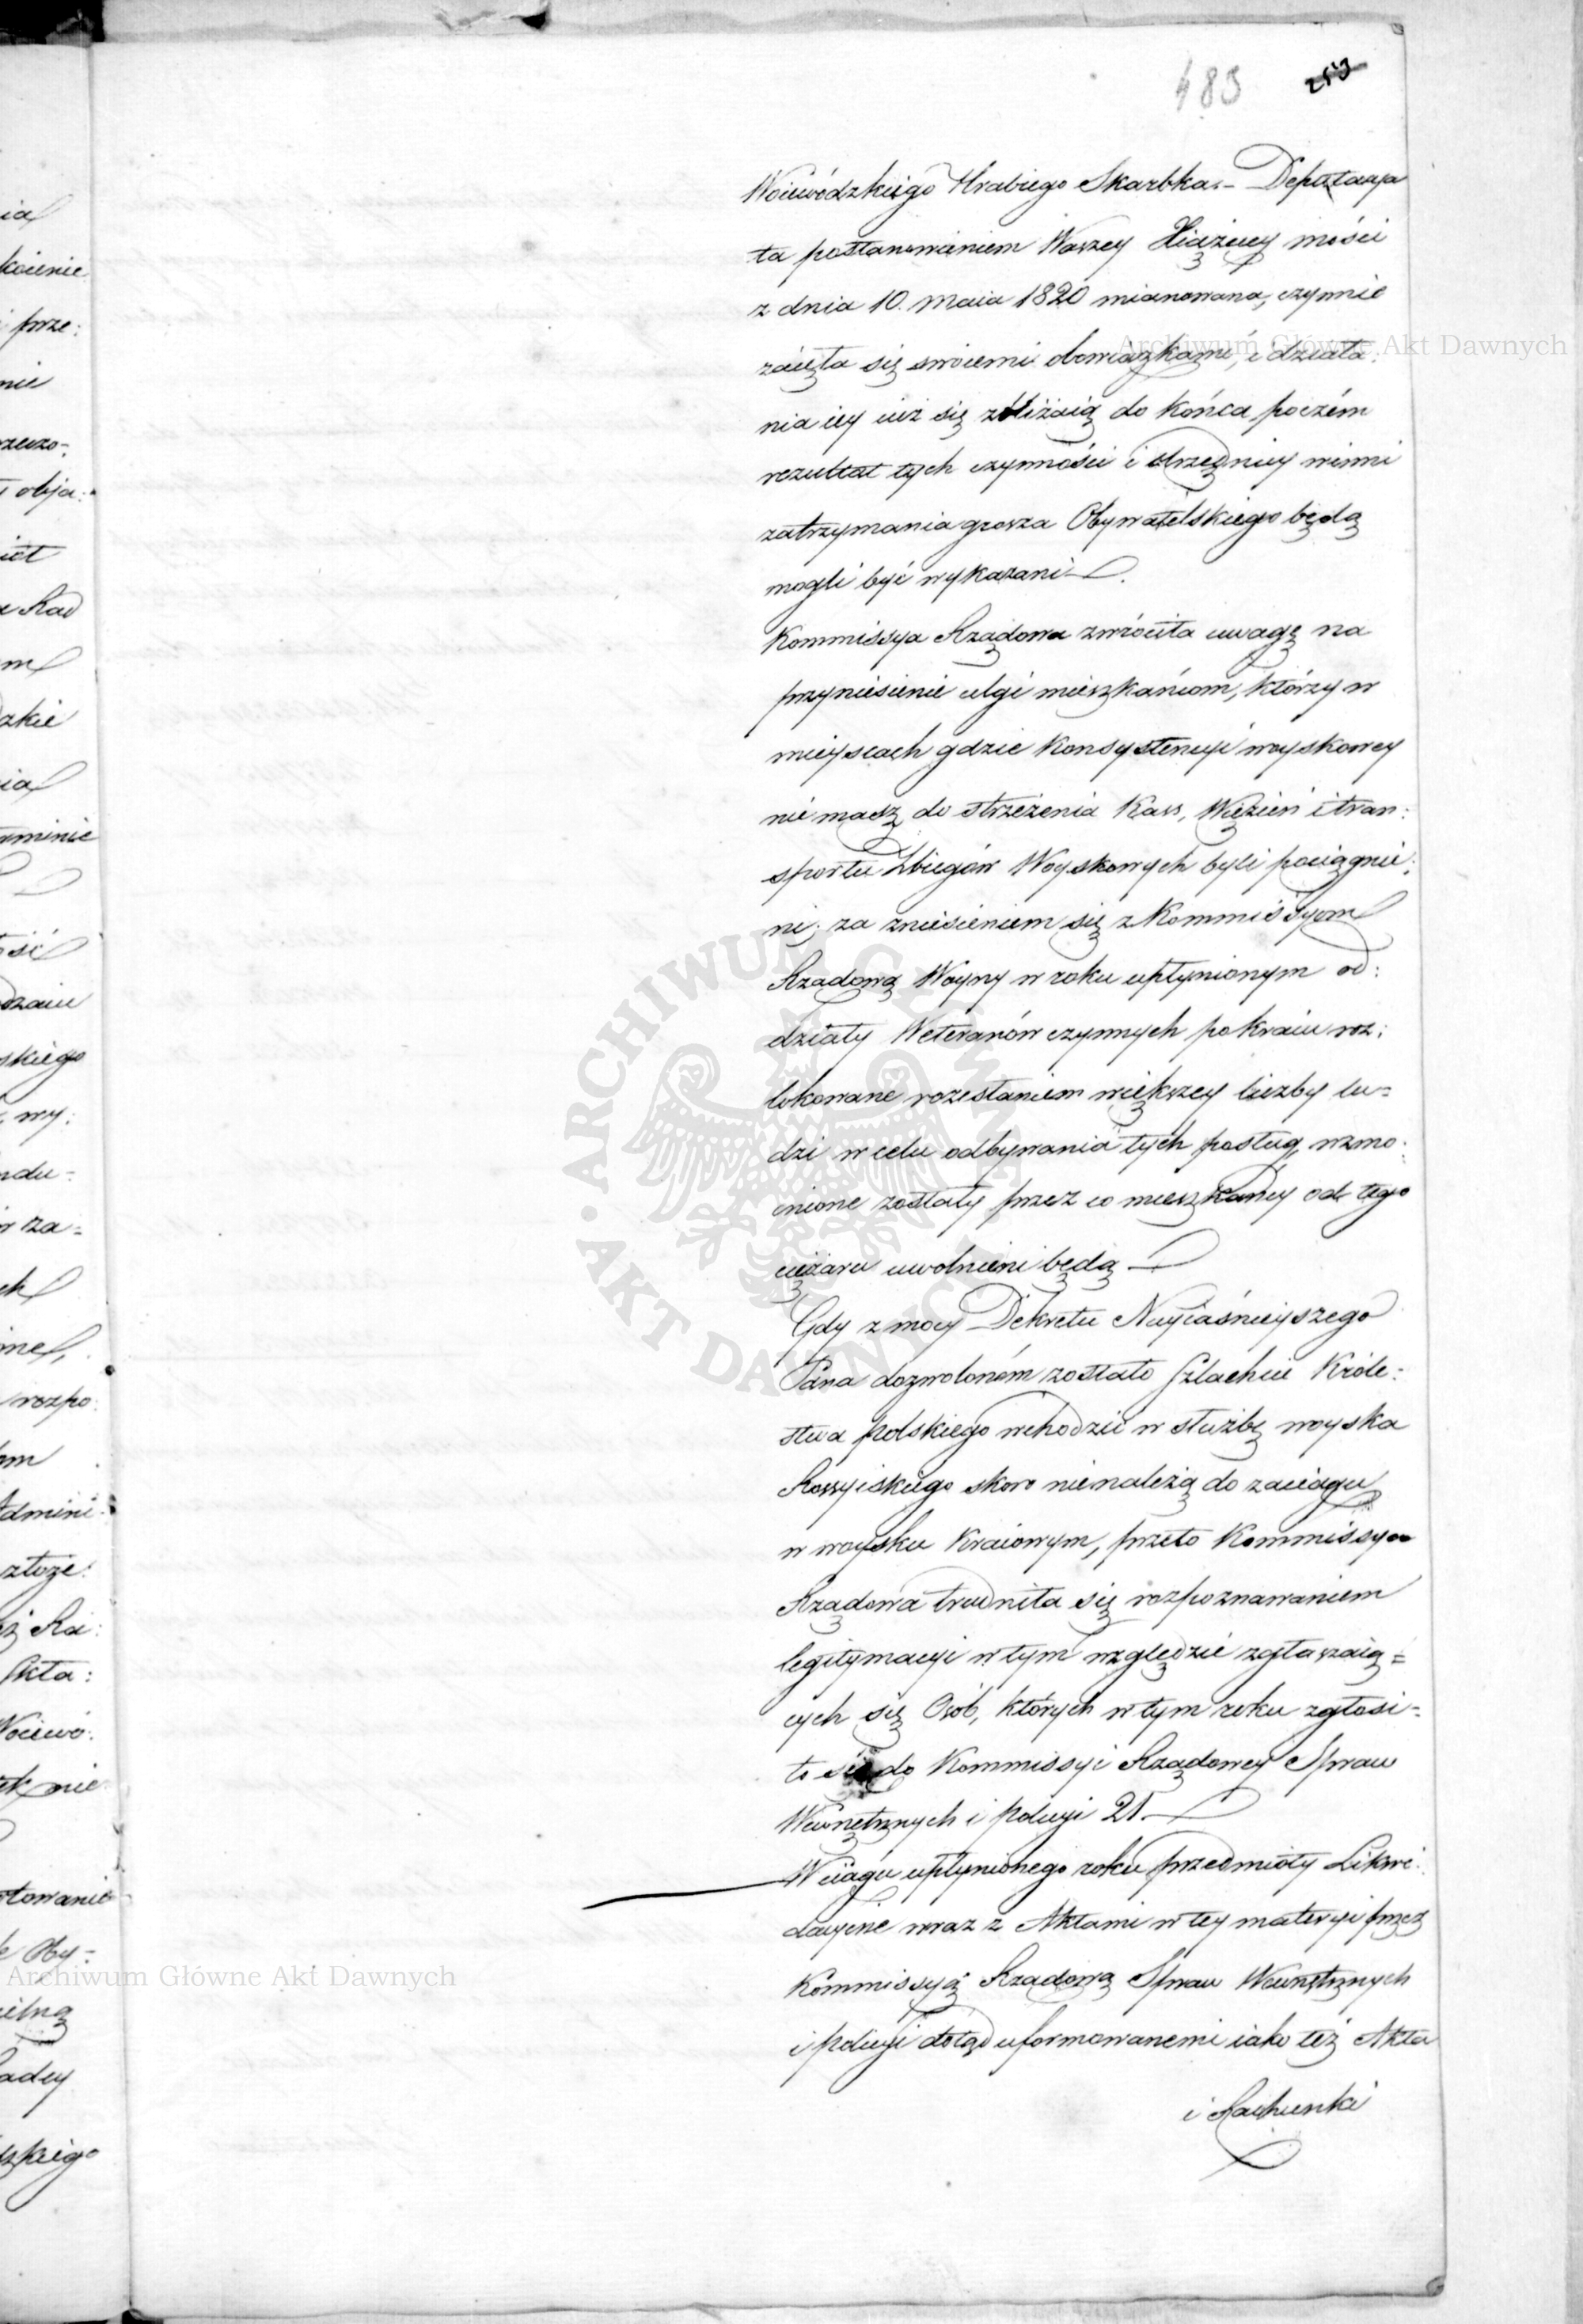 483 259
Woiewódzkiego Hrabiego Skarbka. – Deputacya
ta postanowieniem Waszey Xiążęcey mości
z dnia 10. maia 1820 mianowana, czynnie
zaięła się swoiemi obowiązkami, i działa:
nia iey iuż się zbliżaią do końca poczém
rezultat tych czynności i Urzędnicy winni
zatrzymania grosza Obywatelskiego będą
mogli być wykazani.
Kommissya Rządowa zwróciła uwagę na
przyniesienie ulgi mieszkańcom, którzy w
mieyscach gdzie Konsystencyi woyskowey
nie masz do strzeżenia Kass, Więzień i tran:
sportu Zbiegów Woyskowych byli pociągnie:
ni; za zniesieniem się z Kommissyą
Rządową Woyny w roku upłynionym od:
działy Weteranów czynnych po kraiu roz:
lokowane rozesłaniem większey liczby lu=
dzi w celu odbywania tych posług, wzmo:
cnione zostały przez co mieszkańcy od tego
ciężaru uwolnieni będą
Gdy z mocy Dekretu Nayiaśnieyszego
Pana dozwoloném zostało Szlachcie Króle:
stwa polskiego wchodzić w służbę woyska
Rossyiskiego skoro nienależą do zaciągu
w woysku Kraiowym, przeto Kommissya
Rządowa trudniła się rozpoznawaniem
legitymacyi w tym względzie zgłaszaią=
cych się Osób, których w tym roku zgłosi=
ło się do Kommissyi Rządowey Spraw
Wewnętrznych i policyi 21.
W ciągu upłynionego roku przedmioty Likwi:
dacyine wraz z Aktami w tey materyi przez
Kommissyą Rządową Spraw Wewnętrznych
i policyi dotąd uformowanemi iako też Akta
i Rachunki
Archiwum Główne Akt Dawnych
Archiwum Główne Akt Dawnych
ARCHIWUM GŁÓWNE AKT DAWNYCH